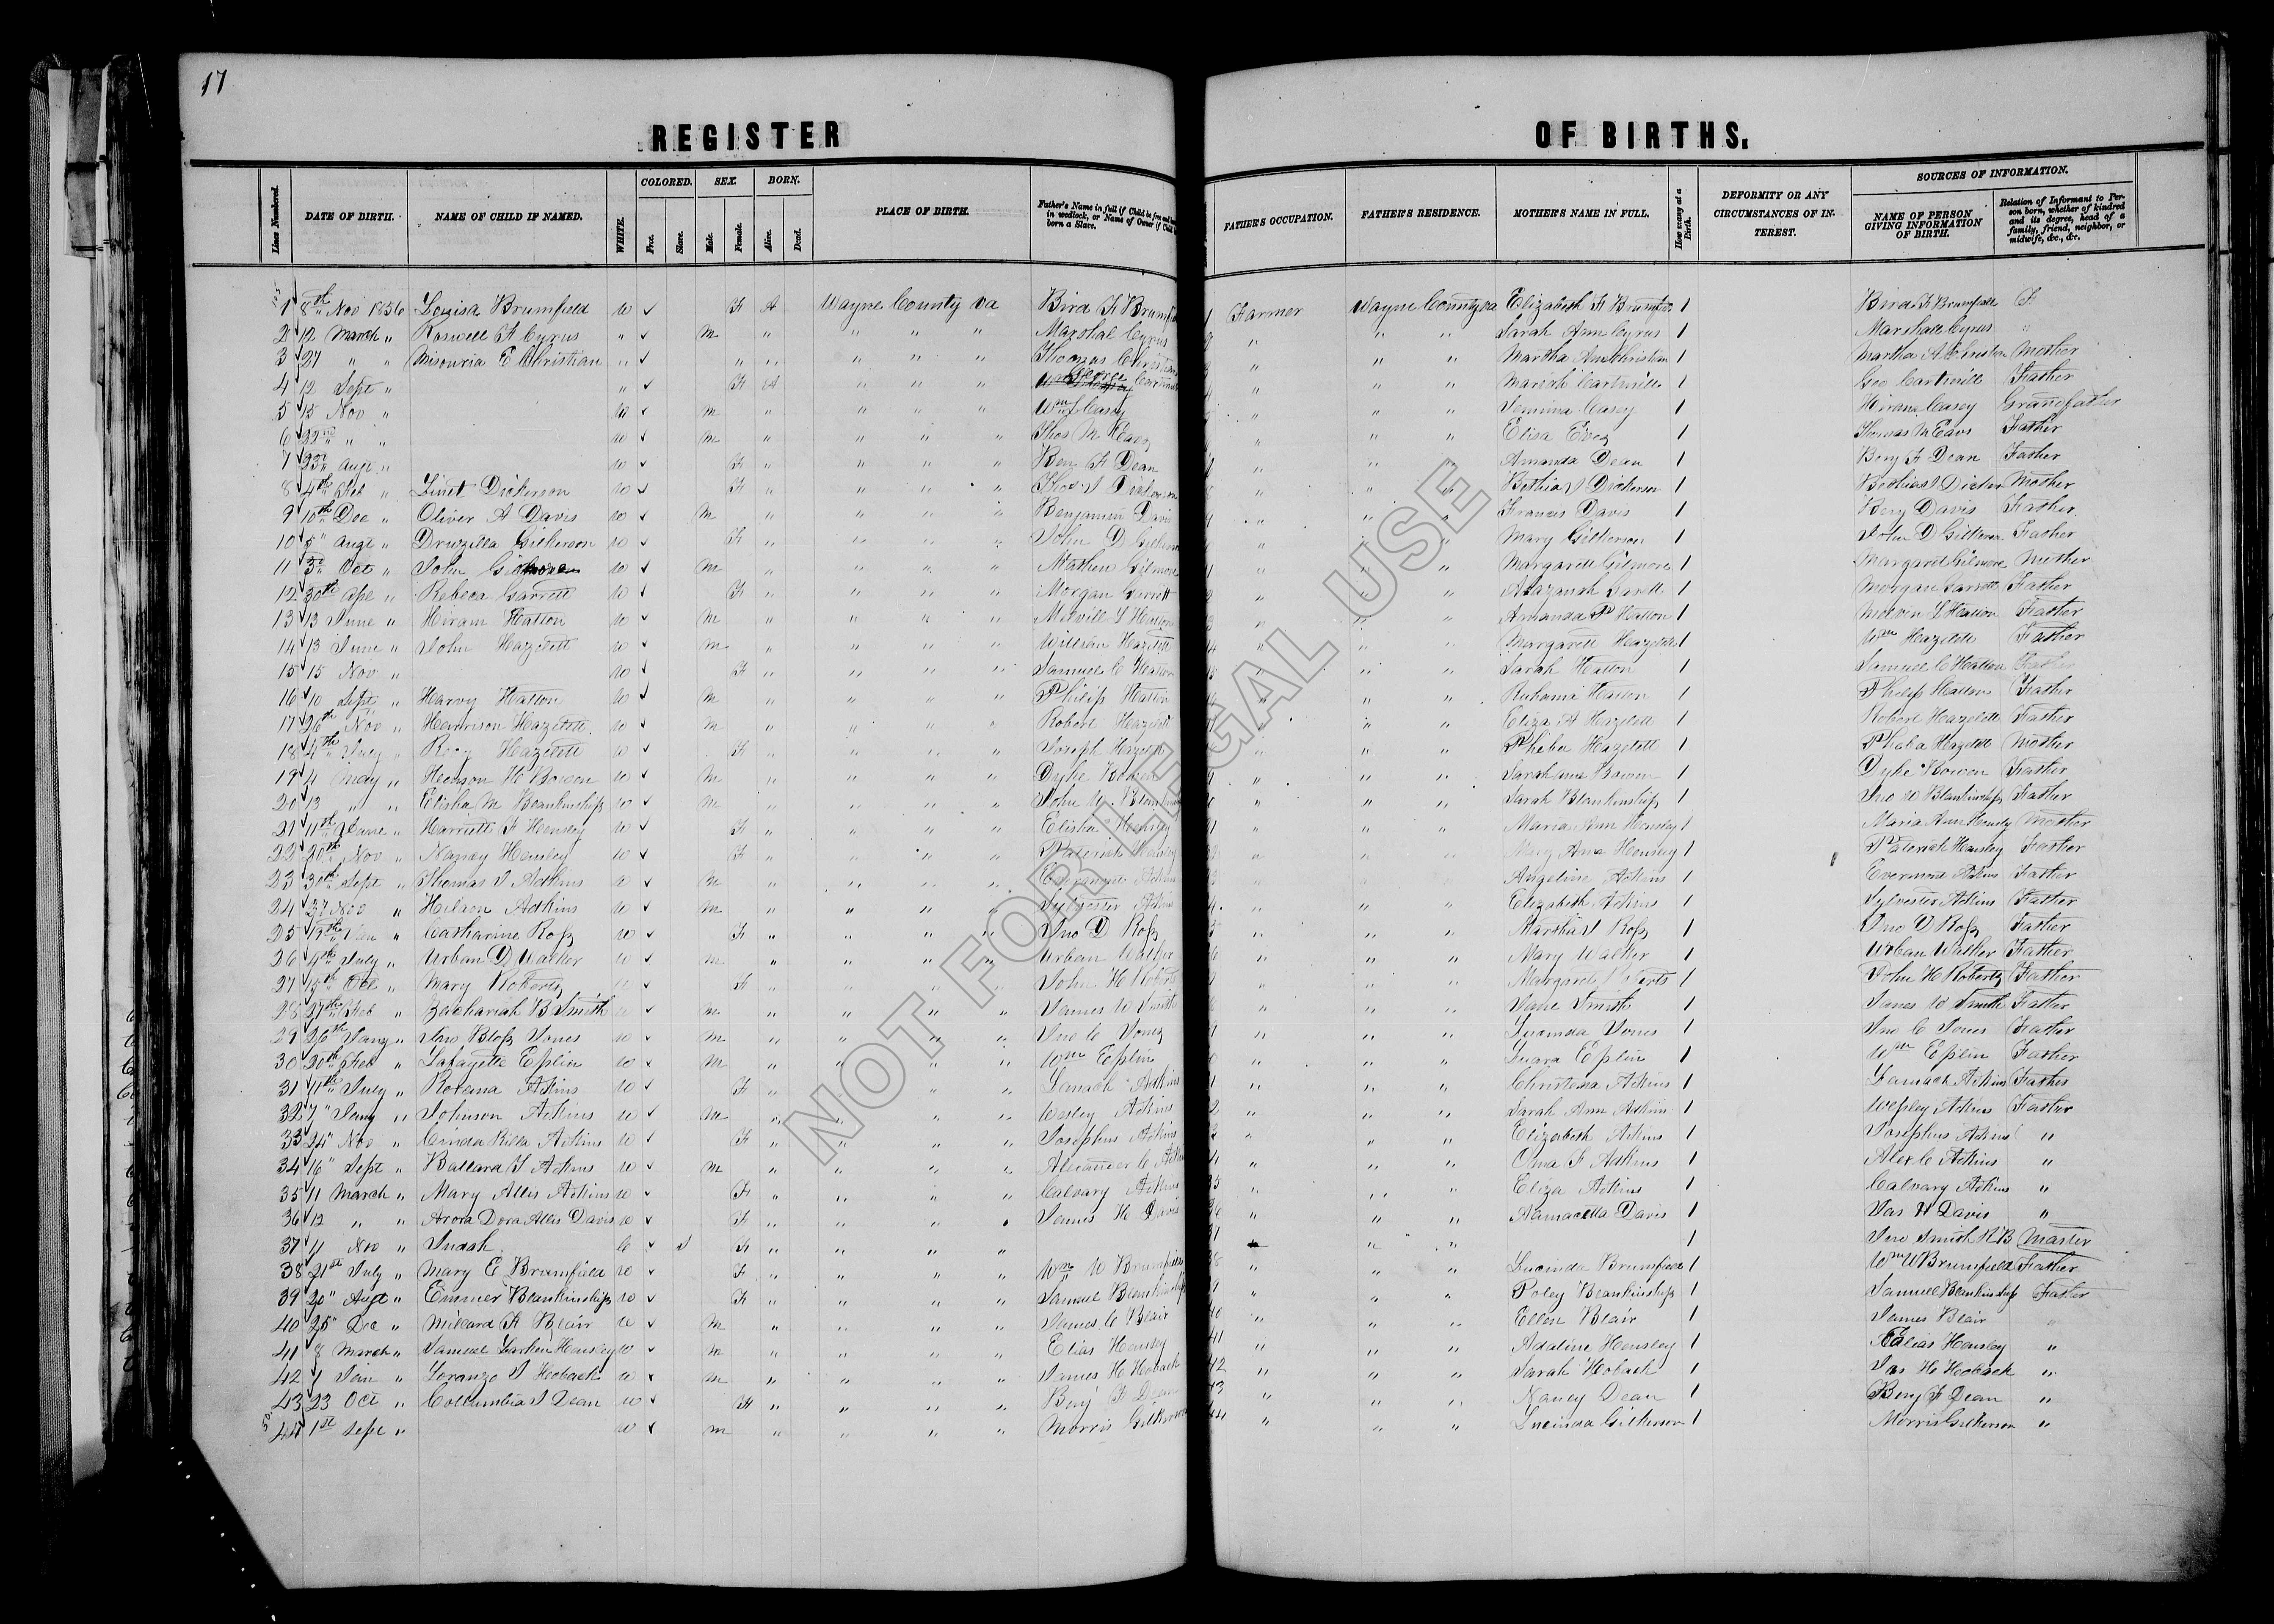 17
REGISTER OF BIRTHS.
Lines Numbered. DATE OF BIRTH. NAME OF CHILD IF NAMED. WHITE. COLORED. Free. Slave. SEX. Male. Female. BORN. Alive. Dead. PLACE OF BIRTH. Father's Name in full if Child be free and born in wedlock, or Name of Owner if Child born a Slave. FATHER'S OCCUPATION. FATHER'S RESIDENCE. MOTHER'S NAME IN FULL. How many at a Birth. DEFORMITY OR ANY CIRCUMSTANCES OF INTEREST. SOURCES OF INFORMATION. NAME OF PERSON GIVING INFORMATION OF BIRTH. Relation of Informant to Person born, whether of kindred and its degree, head of a family, friend, neighbor, or midwife, &c., &c.
1 8th Nov 1856 Louisa Brumfield W F A Wayne County Va Bird F Brumf Farmer Wayne County Va Elizabeth F Brumf 1 Bird F Brumfield F
2 12 March " Roswell A Cyrus " M " " " Marshal Cyrus " " " Sarah Ann Cyrus 1 Marshall Cyrus "
3 27 " " Misouria E Christian " " " " " " Thomas Christian " " " Martha Ann Christian 1 Martha A Mother
4 12 Sept " " F A " " " George " " " Mariah Cartmill 1 Geo Cartmill Father
5 15 Nov " W M " " " " Wm J Casey " " " Jemima Casey 1 Hiram Casey Grandfather
6 22nd " " W M " " " " Thos M " " " Elisa 1 Thomas M Father
7 23d Augt " W F " " " " Ben F Dean " " " Amanda Dean 1 Benj F Dean Father
8 4th Feb " Dickerson W F " " " " Thos J Dickerson " " " Bethia J Dickerson 1 Bethia J Mother
9 10th Dec " Oliver A Davis W M " " " " Benjamin Davis " " " Frances Davis 1 Benj Davis Father
10 5" Augt " Druzilla Gilkerson W F " " " " John D Gilkerson " " " Mary Gilkerson 1 John D Gilkerson Father
11 3d Oct " John Gilmore W M " " " " Mathew Gilmore " " " Margarett Gilmore 1 Margaret Gilmore Mother
12 30th Ape " Rebeca Garrett W F " " " " Morgan Garrett " " " Garett 1 Morgan Garrett Father
13 13 June " Hiram Hatton W M " " " " Melvill S Hatton " " " Amanda P Hatton 1 Melvin S Hatton Father
14 13 June " John Hazelett W M " " " " William Hazelett " " " Margarett Hazelett 1 Wm Hazelett Father
15 15 Nov " W F " " " " Samuel C Hatton " " " Sarah Hatton 1 Samuel C Hatton Father
16 10 Sept " Harvy Hatton W M " " " " Philip Hatton " " " Ruhama Hatton 1 Philip Hatton Father
17 26th Nov " Harrison Hazelett W M " " " " Robert Hazelett " " " Eliza A Hazelett 1 Robert Hazelett Father
18 4th July " Hazelett W F " " " " Joseph Hazelett " " " Pheba Hazelett 1 Pheba Hazelett Mother
19 4 May " H Bowen W M " " " " Dyke Bowen " " " Sarah Ann Bowen 1 Dyke Bowen Father
20 13 " " Elisha M Blankinship W M " " " " John W. Blankinship " " " Sarah Blankinship 1 Jno W Blankinship Father
21 11th June " Harriett F Hensley W F " " " " Elisha Hensley " " " Maria Ann Hensley 1 Maria Ann Hensly Mother
22 20th Nov " Nancy Hensley W F " " " " Hensley " " " Mary Ann Hensley 1 Hensley Father
23 30th Sept " Thomas J Adkins W M " " " " Adkins " " " Angeline Adkins 1 Evermont Adkins Father
24 27 Nov " Hilson Adkins W M " " " " Sylvester Adkins " " " Elizabeth Adkins 1 Sylvester Adkins Father
25 19th Jan " Catharine Ross W F " " " " Jno D Ross " " " Martha J Ross 1 Jno D Ross Father
26 9th July " Urban D Walker W M " " " " Urban Walker " " " Mary Walker 1 Urban Walker Father
27 15th Oct " Mary Roberts W F " " " " John H Roberts " " " Margaret Roberts 1 John H Roberts Father
28 27th Feb " Zachariah B Smith W M " " " " James W Smith " " " Jane Smith 1 James W Smith Father
29 26th Jany " Jno Bloss Jones W M " " " " Jno C Jones " " " Lucinda Jones 1 Jno C Jones Father
30 20th Feb " Lafayette Esplin W M " " " " Wm Esplin " " " Luara Esplin 1 Wm Esplin Father
31 11th July " Rolena Adkins W F " " " " Lamach Adkins " " " Christena Adkins 1 Lamach Adkins Father
32 7" Jany " Johnson Adkins W M " " " " Wesley Adkins " " " Sarah Ann Adkins 1 Wesley Adkins Father
33 24" Nov " Cinda Rilla Adkins W F " " " " Josephus Adkins " " " Elizabeth Adkins 1 Josephus Adkins "
34 16" Sept " Ballard J Adkins W M " " " " Alexander C Adkins " " " Oma F Adkins 1 Alex C Adkins "
35 11 March " Mary Allis Adkins W F " " " " Calvary Adkins " " " Eliza Adkins 1 Calvary Adkins "
36 12 " " Arora Dora Allis Davis W F " " " " James H Davis " " " Davis 1 Jas H Davis "
37 11 Nov " Judah. C S F " " " " " " 1 Jno Smith R B Master
38 21st July " Mary E Brumfield W F " " " " Wm W Brumfield " " " Lucinda Brumfield 1 Wm W Brumfield Father
39 20" Augt " Emmer Blankinship W F " " " " Samuel Blankinship " " " Poley Blankinship 1 Samuel Blankinship Father
40 25" Dec " Millard F Blair W M " " " " James C Blair " " " Ellen Blair 1 James Blair "
41 8 March " Samuel Larkin Hensley W M " " " " Elias Hensley " " " Adaline Hensley 1 Elias Hensley "
42 1 Jan " Loranzo J Hoback W M " " " " James H Hoback " " " Sarah Hoback 1 Jas H Hoback "
43 23 Oct " Collumbia J Dean W F " " " " Benj F Dean " " " Nancy Dean 1 Benj F Dean "
44 1st Sept " W M " " " " Morris Gilkerson " " " Lucinda Gilkerson 1 Morris Gilkerson "
NOT FOR LEGAL USE